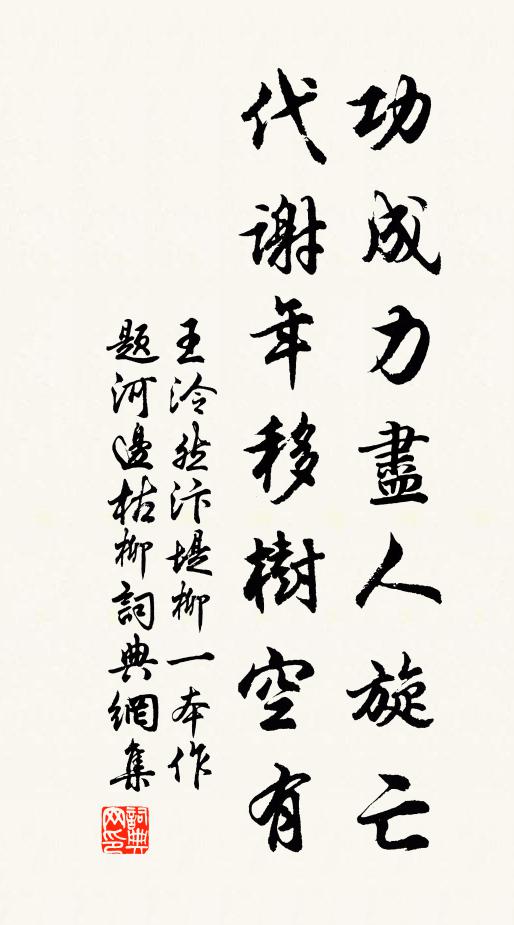 功成力盡人旋亡
代謝年移樹空有
王泠然汴堤柳一本作
題河邊枯柳詞典網集
詞典網印